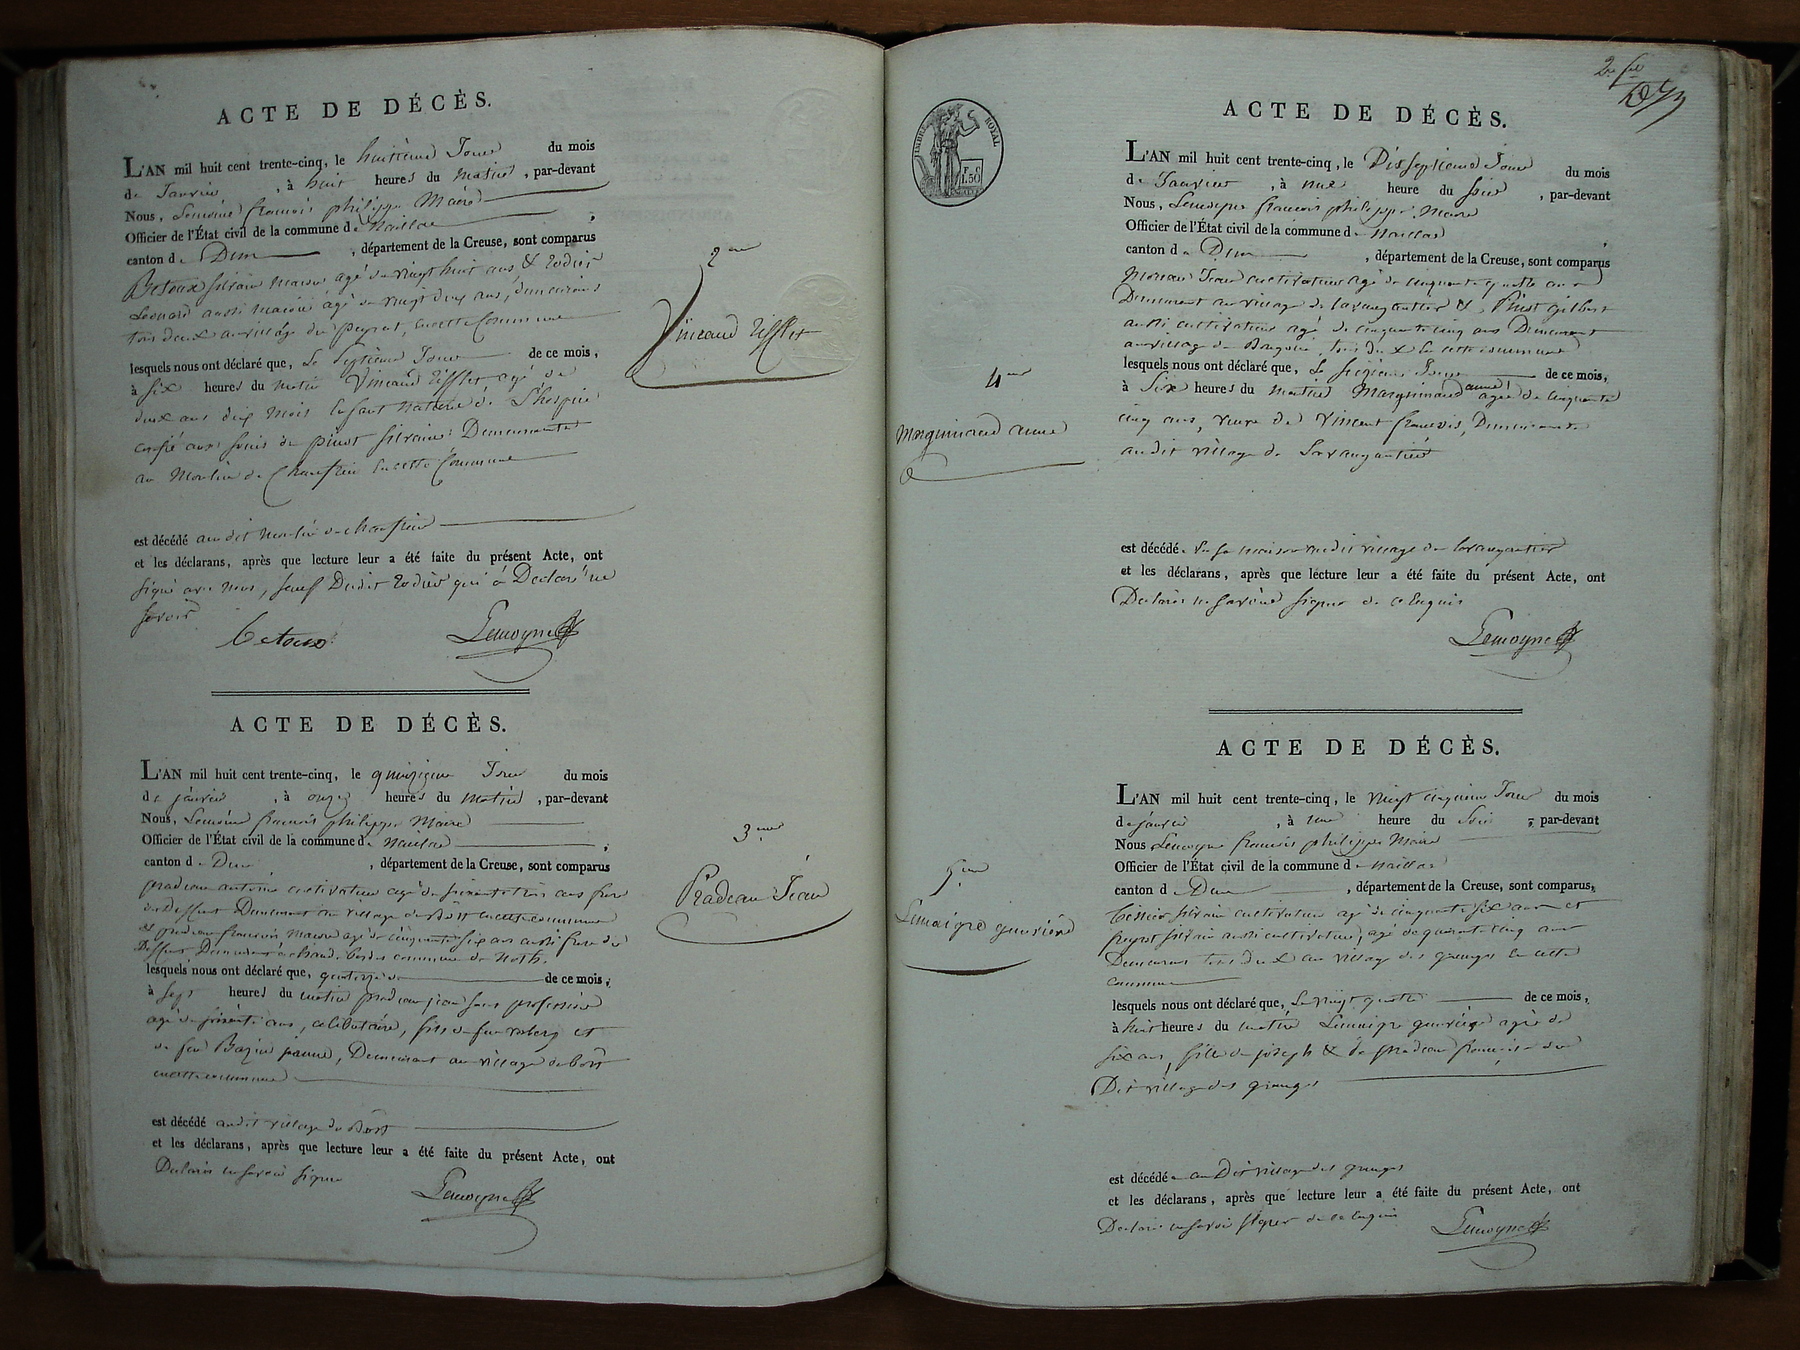 ACTE DE DÉCÈS.
L'AN mil huit cent trente-cinq, le huitième Jour du mois
de Janvier, à huit heures du matin, par-devant
Nous, Lemoine françois philippe Maire
Officier de l'État civil de la commune de Naillac ,
canton de Dun , département de la Creuse, sont comparus
Betoux silvain maçon agé de vingt huit ans & Rodier
Léonard aussi maçon agé de vingt deux ans, demeurans
tous deux au village du peyrat, en cette Commune
lesquels nous ont déclaré que, Le septième Jour de ce mois,
à six heures du matin Vincaud Zifflet, agé de
deux ans dix mois Enfant naturel de L'hospice
confié aux soins de pinot silvaine Demeurante
au Moulin de Chanfrier En cette Commune
est décédé audit moulin de chanfrier
et les déclarans, après que lecture leur a été faite du présent Acte, ont
signé avec nous, sauf Ledit Rodier qui a Declaré ne
savoir
Betoux
Lemoyne
2eme
Vincaud Zifflet
ACTE DE DÉCÈS.
L'AN mil huit cent trente-cinq, le quinzième Jour du mois
de janvier , à onze heures du matin , par-devant
Nous, Lemoine françois philippe Maire
Officier de l'État civil de la commune de Naillac ,
canton de Dun , département de la Creuse, sont comparus
pradeau antoine cultivateur agé de soixante trois ans frere
du Deffunt Demeurant au village de Bost en cette commune
et pradeau françois maçon agé de cinquante six ans aussi frere du
Deffunt Demeurant a chaude bordes commune de Noth.
lesquels nous ont déclaré que, quatorze de ce mois,
à sept heures du matin pradeau jean sans profession
agé de soixante ans, celibataire, fils de feu et
de feu Bazin jeanne, Demeurant au village de bost
en cette commune
est décédé audit village du Bost
et les déclarans, après que lecture leur a été faite du présent Acte, ont
Declarés ne savoir signer
Lemoyne
3eme
Pradeau Jean
2e fle
TIMBRE ROYAL
F. C
1.50
ACTE DE DÉCÈS.
L'AN mil huit cent trente-cinq, le Dix septieme Jour du mois
de Janvier , à une heure du soir , par-devant
Nous, Lemoyne françois philippe Maire
Officier de l'État civil de la commune de Naillac ,
canton de Dun , département de la Creuse, sont comparus
Moreau Jean cultivateur agé de cinquante quatre ans
Demeurant au village de Lavaugautier & Pinot gilbert
aussi cultivateur agé de cinquante cinq ans Demeurant
au village de , tous deux En cette commune
lesquels nous ont déclaré que, Le seizieme Jour de ce mois,
à Six heures du matin Marguinaud anne agée de cinquante
cinq ans, veuve de Vincent françois, Demeurante
audit village de Lavaugautier
est décédé En sa maison audit village de Lavaugautier
et les déclarans, après que lecture leur a été faite du présent Acte, ont
Declarés ne savoir signer de ce Enquis
Lemoyne
4eme
Marguinaud anne
ACTE DE DÉCÈS.
L'AN mil huit cent trente-cinq, le vingt cinquieme Jour du mois
de janvier , à une heure du soir , par-devant
Nous Lemoyne françois philippe Maire
Officier de l'État civil de la commune de Naillac
canton de Dun , département de la Creuse, sont comparus,
silvain cultivateur agé de cinquante six ans et
peyrot silvain aussi cultivateur, agé de quarante cinq ans
Demeurans tous deux au village des granges En cette
commune
lesquels nous ont déclaré que, Le vingt quatre de ce mois,
à huit heures du matin Lemaigre agée de
six ans, fille de joseph & de pradeau françoise du
Dit village des granges
est décédé au Dit village des granges
et les déclarans, après que lecture leur a été faite du présent Acte, ont
Declarés ne savoir signer de ce Enquis
Lemoyne
5eme
Lemaigre